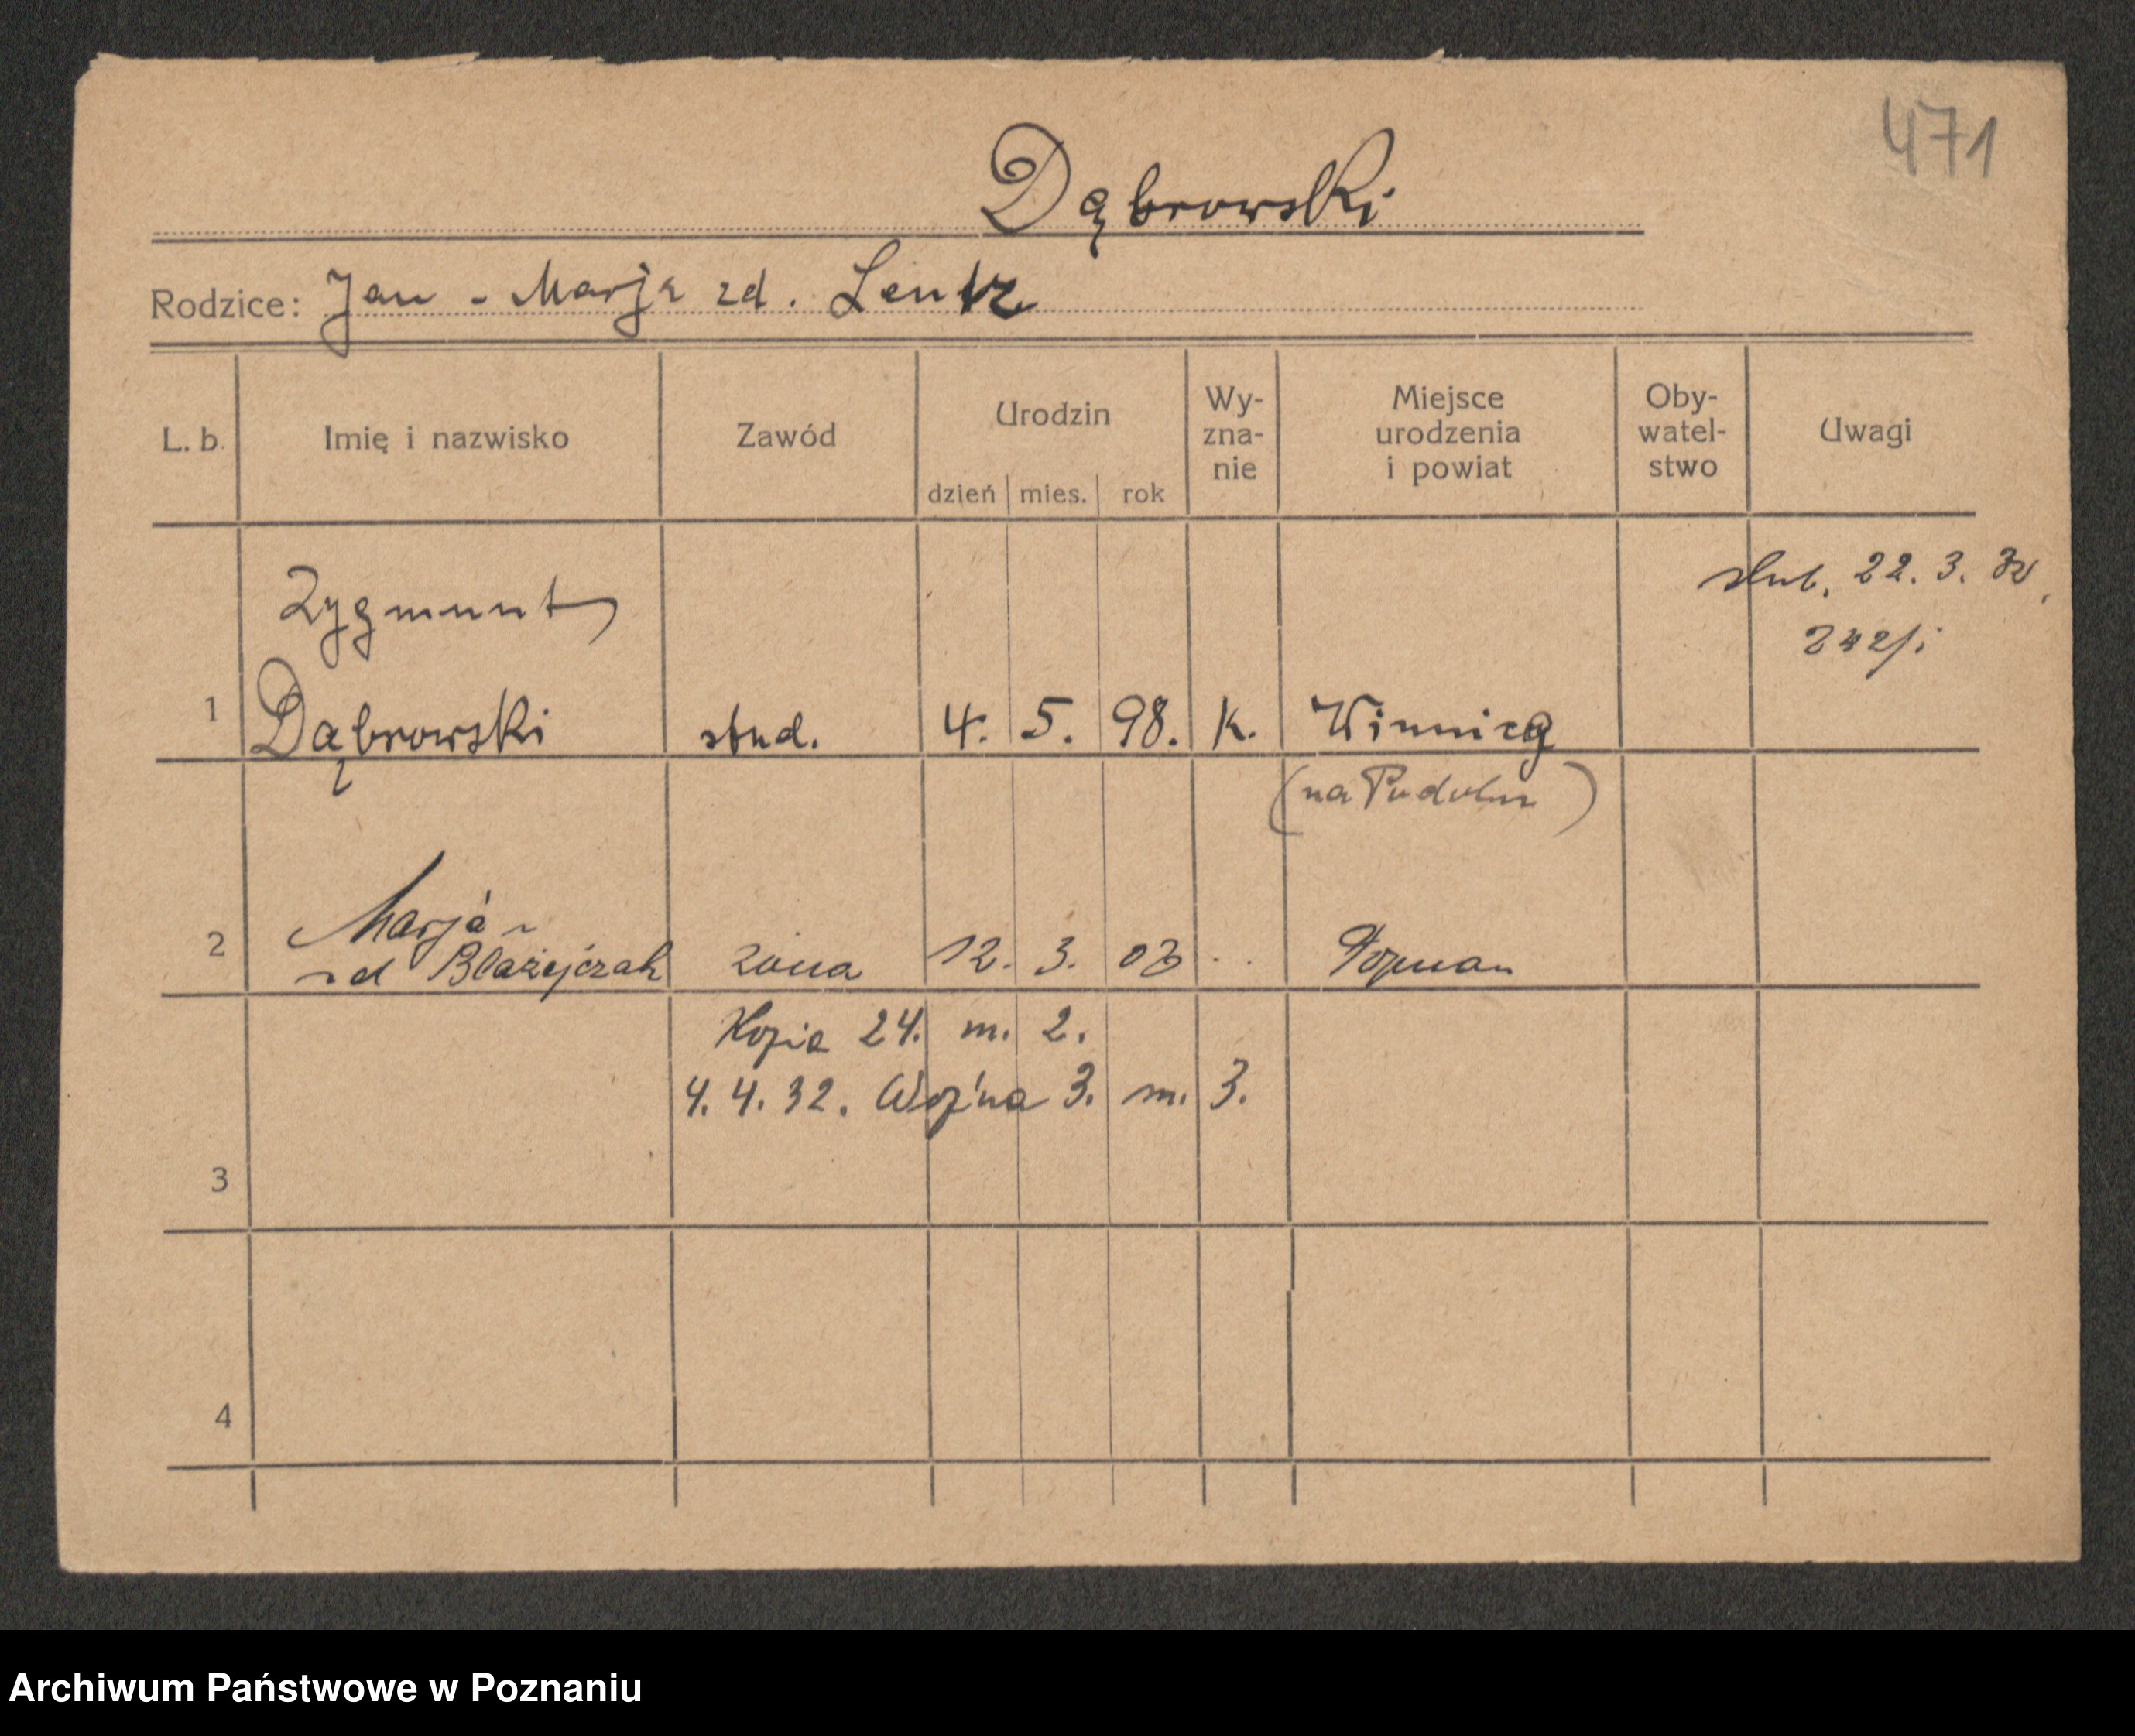 471
Dąbrowski
Rodzice: Jan - Marja zd. Lentz
L. b. Imię i nazwisko Zawód Urodzin dzień mies. rok Wy-zna-nie Miejsce urodzenia i powiat Oby-watel-stwo Uwagi
ślub. 22. 3. 32.
Zygmunt
1 Dąbrowski stud. 4. 5. 98. K. Winnica
(na Podolu)
Marja
2 zd Błażejczak żona 12. 3. 03 .. Poznań
24. m. 2.
4. 4. 32. 3. m. 3.
3
4
Archiwum Państwowe w Poznaniu